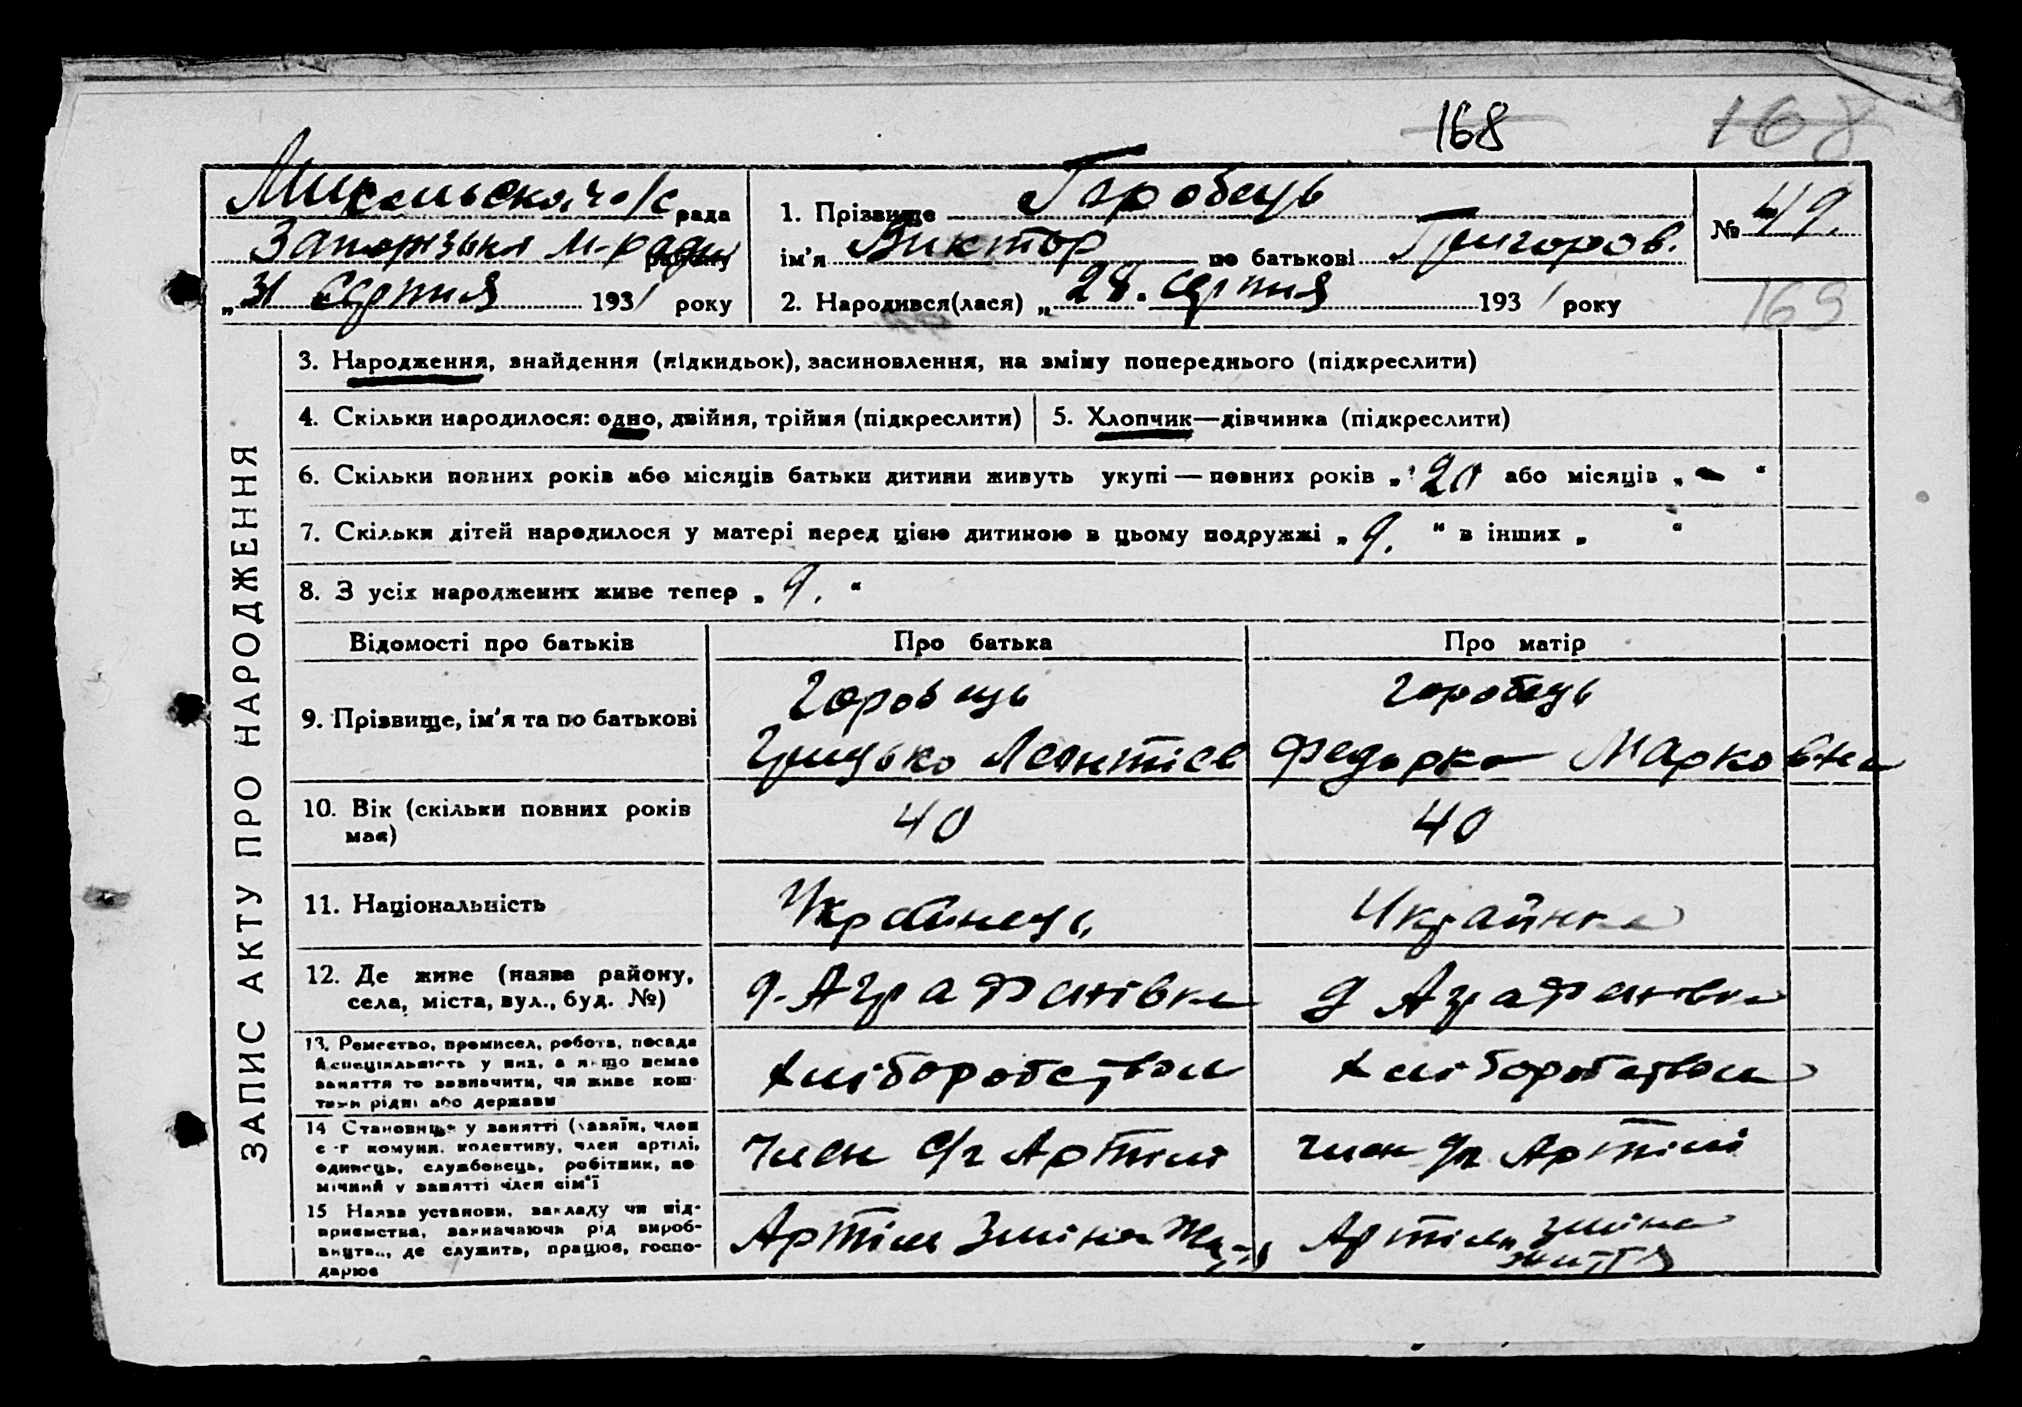 168 168
Микольская с/с рада
Запорізька м-рада району
„31 серпня 1931 року
1. Прізвище Горобець
ім'я Виктор по батькові Григоров.
2. Народився(лася) „28. серпня 1931 року
№ 49.
169
ЗАПИС АКТУ ПРО НАРОДЖЕННЯ
3. Народження, знайдення (підкидьок), засиновлення, на зміну попереднього (підкреслити)
4. Скільки народилося: одно, двійня, трійня (підкреслити) 5. Хлопчик—дівчинка (підкреслити)
6. Скільки повних років або місяців батьки дитини живуть укупі — повних років „20 або місяців „-“
7. Скільки дітей народилося у матері перед цією дитиною в цьому подружжі „9.“ в інших „ “
8. З усіх народжених живе тепер „9.“
Відомості про батьків Про батька Про матір
9. Прізвище, ім'я та по батькові
Горобець Горобець
Грицько Леонтієв Федорка Марковна
10. Вік (скільки повних років
має)
40 40
11. Національність Українець Українка
12. Де живе (назва району,
села, міста, вул., буд. №)
д. Аграфенівка д Аграфенівка
13. Ремество, промисел, робота, посада
й спеціяльність у них, а якщо немає
заняття то зазначити, чи живе кош-
тами рідні або держави
хліборобством хліборобством
14 Становище у занятті (хазяїн, член
с-г комуни, колективу, член артілі,
одинець, службовець, робітник, по-
мічний у занятті член сім'ї
член с/г Артілі член с/г Артілі
15 Назва установи, закладу чи під-
приємства, зазначаючи рід вироб-
ництва, де служить, працює, госпо-
дарює
Артіль Зміна Життя Артіль зміна
життя